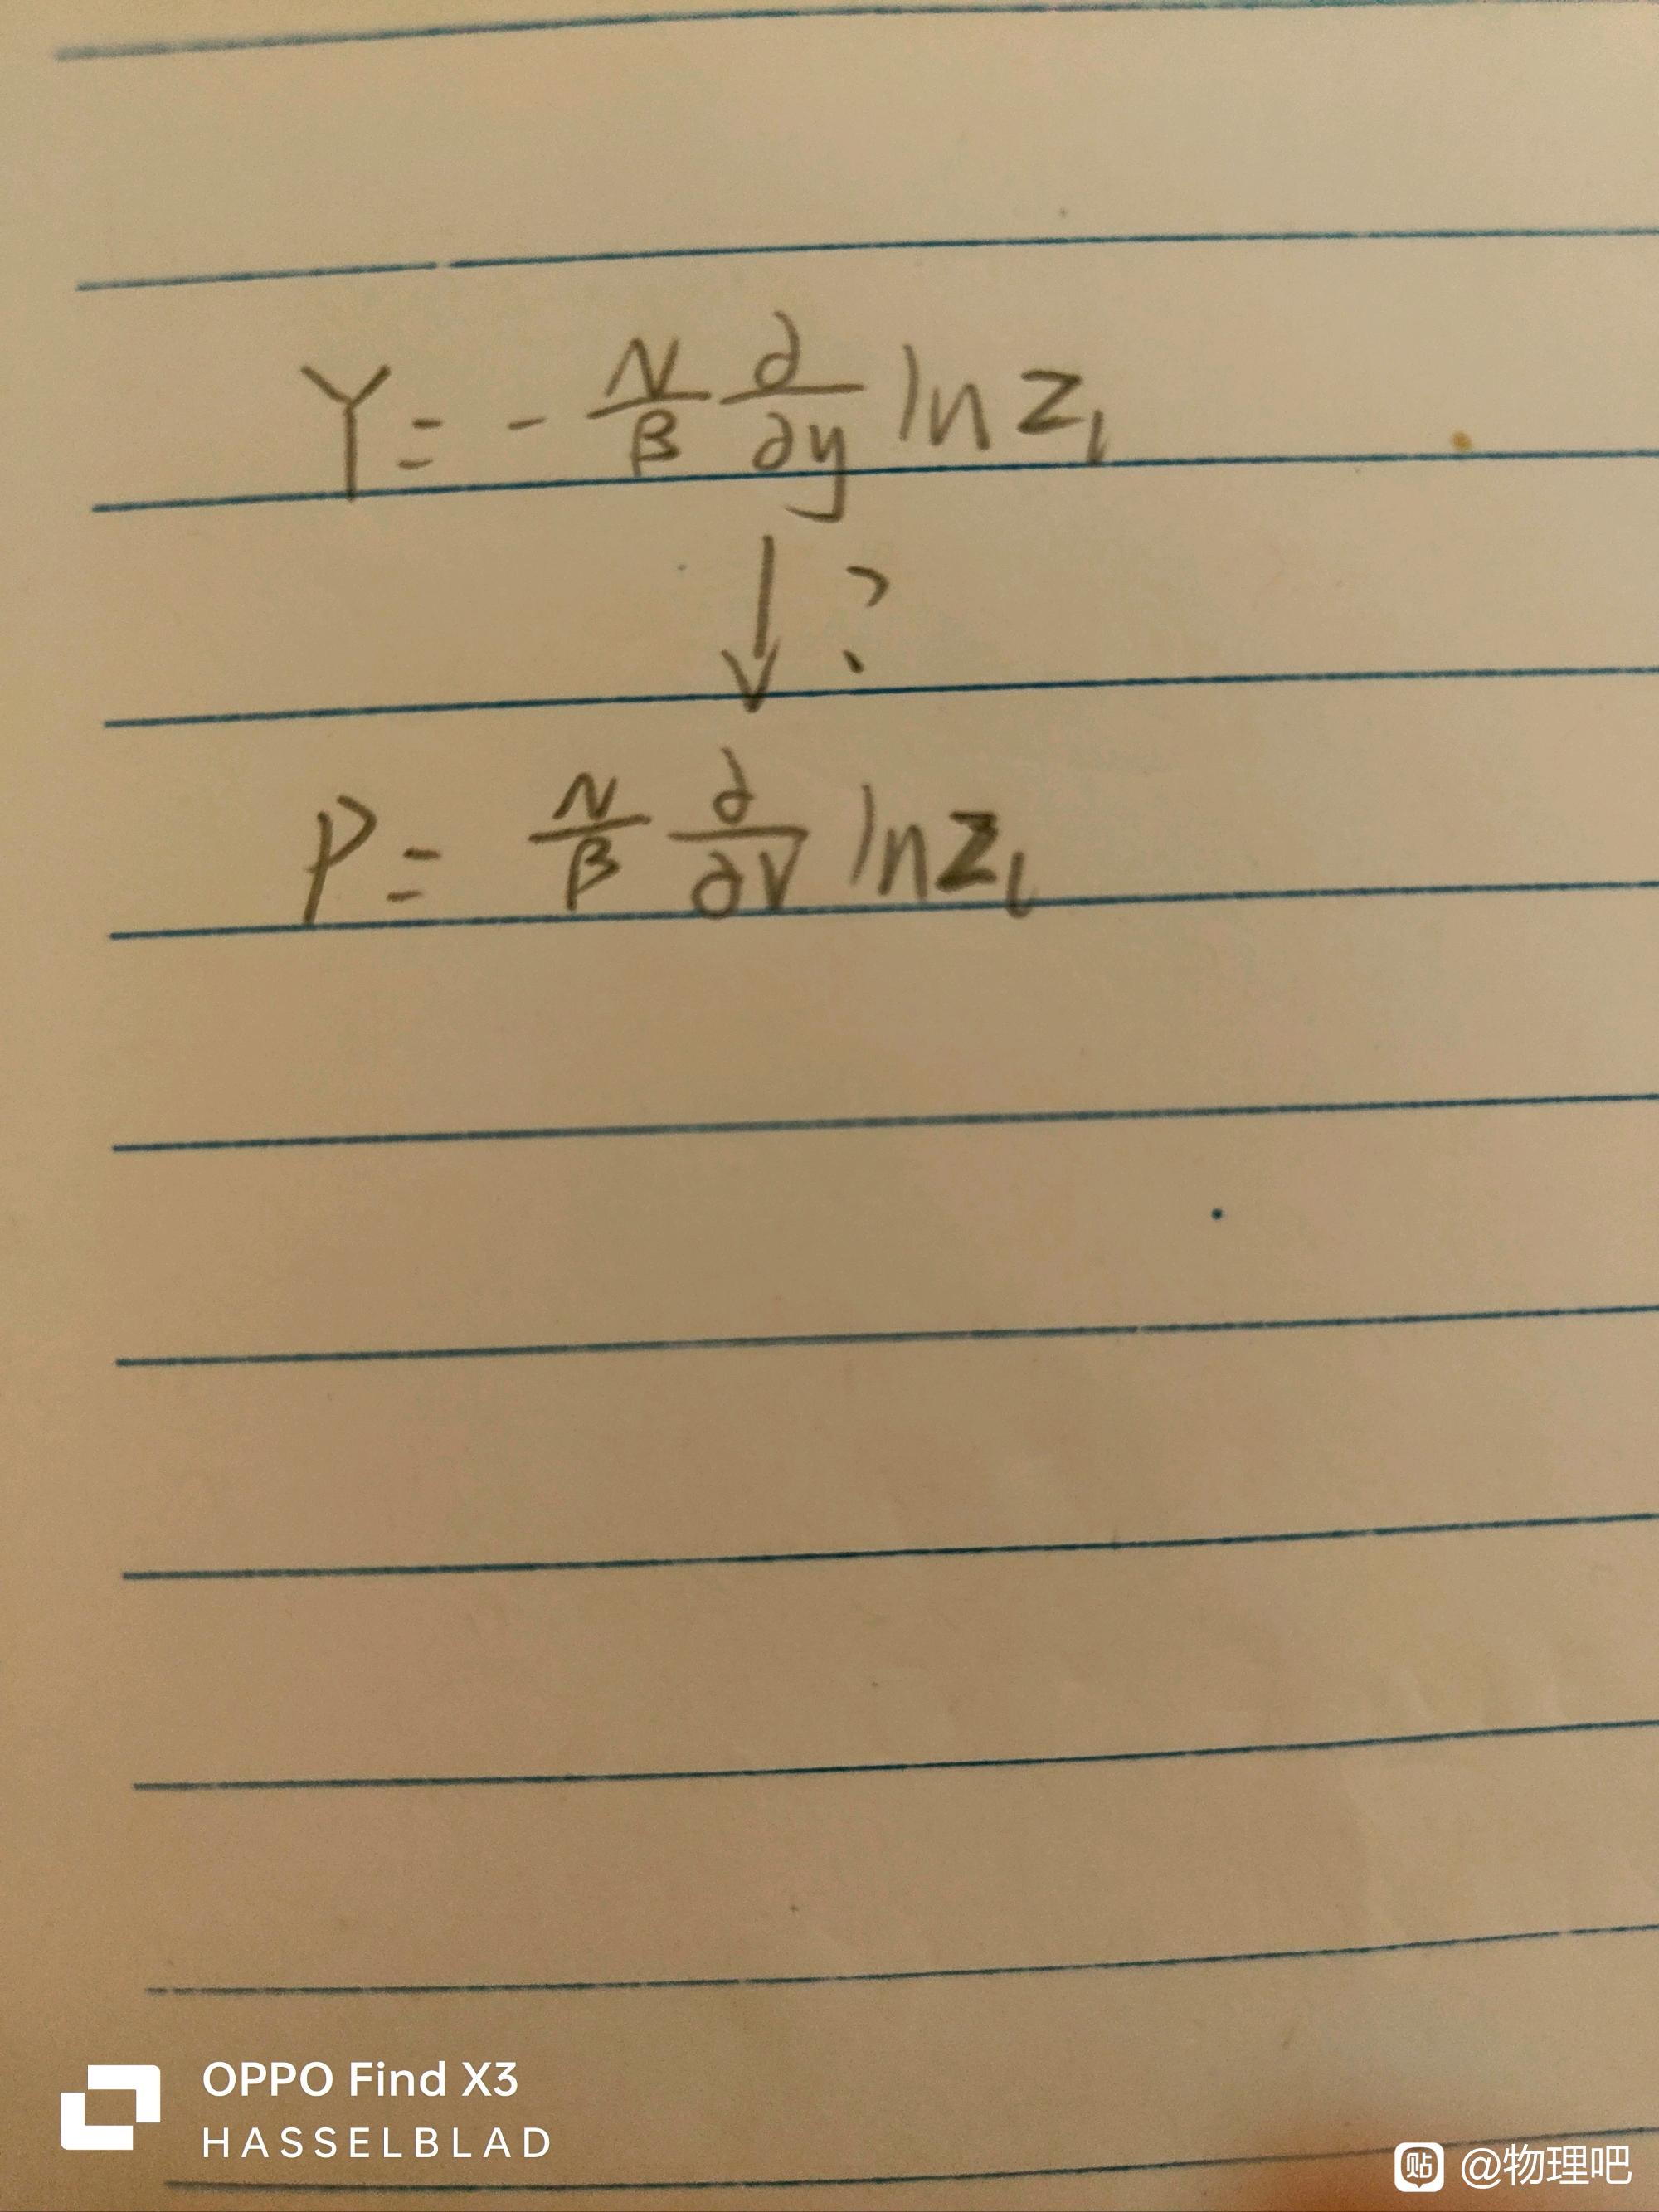 Y = - N/β ∂/∂y ln Z₁
↓ ?
P = N/β ∂/∂V ln Z₁
OPPO Find X3
HASSELBLAD
贴 @物理吧